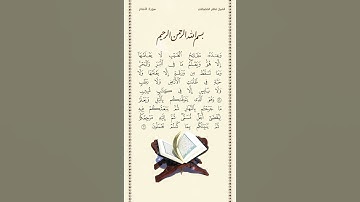 سورة الأنعام
بسم الله الرحمن الرحيم
وَعِندَهُ مَفَاتِحُ الْغَيْبِ لَا يَعْلَمُهَا
إِلَّا هُوَ وَيَعْلَمُ مَا فِي الْبَرِّ وَالْبَحْرِ
وَمَا تَسْقُطُ مِن وَرَقَةٍ إِلَّا يَعْلَمُهَا وَلَا
حَبَّةٍ فِي ظُلُمَاتِ الْأَرْضِ وَلَا رَطْبٍ
وَلَا يَابِسٍ إِلَّا فِي كِتَابٍ مُّبِينٍ
وَهُوَ الَّذِي يَتَوَفَّاكُم بِاللَّيْلِ وَيَعْلَمُ
مَا جَرَحْتُم بِالنَّهَارِ ثُمَّ يَبْعَثُكُمْ فِيهِ
لِيُقْضَىٰ أَجَلٌ مُّسَمًّى ثُمَّ إِلَيْهِ مَرْجِعُكُمْ
ثُمَّ يُنَبِّئُكُم بِمَا كُنتُمْ تَعْمَلُونَ